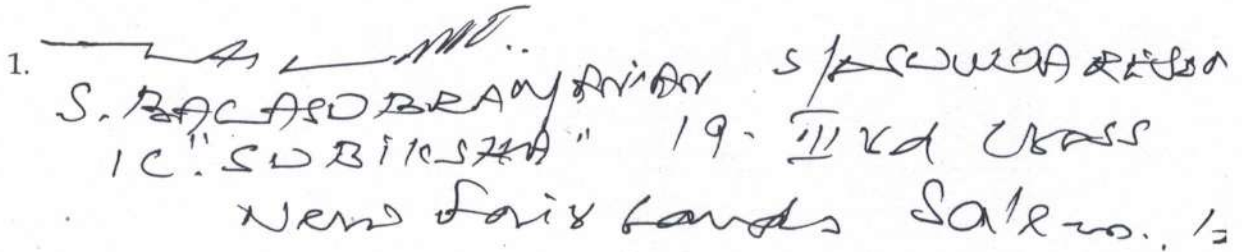 1.
S. BALASUBRAMANIAN S/o SUNDARESAN
1C. "SUBIKSHA" 19. III rd Cross
New Fairlands Salem.